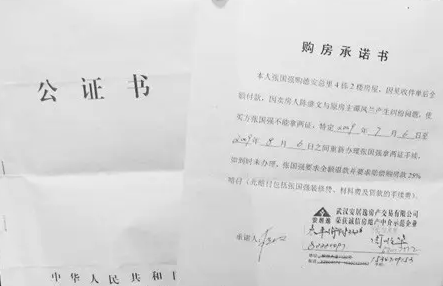 公证书
中华人民共和
购房承诺书
本人张国强购德安总里4栋2楼房屋，因见收件单后全
额付款，因卖房人陈盛文与原房主谭凤兰产生纠纷问题，使
买方张国强不能拿两证，特定2009年7月6日至
2009年8月6日之间重新办理张国强拿两证手续，
如到时未办理，张国强要求全额退款并要求赔偿购房款25%
赔付（此赔付包括张国强装修费、材料费及贷款的手续费）。
武汉安居逸房产交易有限公司
荣获诚信房地产中介示范企业
承诺人：